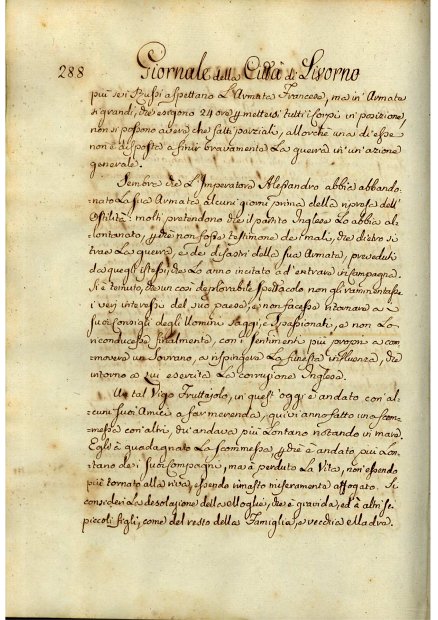 288 Giornale della Città di Livorno
più se i Russi aspettano L'Armata Francese, ma in Armate
sì grandi, che esigono 24 ore p mettersi tutti i Corpi in posizione,
non si possono avere che fatti parziali, allorchè una di esse
non è disposta a finir bravamente La guerra in un'azione
generale.
Sembra che L'Imperatore Alessandro abbia abbando-
nato La sua Armata alcuni giorni prima della ripresa dell'
Ostilità: molti pretendono che il partito Inglese Lo abbia al-
lontanato, p che non fosse testimone de' mali, che dietro si
trae La guerra, e de' disastri della sua Armata, preveduti
da quegli istessi, che Lo anno incitato ad entrare in campagna.
Si è temuto, che un così deplorabile spettacolo non gli rammentasse
i veri interessi del suo paese, e non facesse ritornare a
suoi Consigli degli Uomini Saggi, e spassionati, e non Lo
riconducesse finalmente, con i sentimenti più propri a com-
movere un Sovrano, a respingere La funesta influenza, che
intorno a Lui esercita La corruzione Inglese.
Un tal Vigo Fruttajolo, in quest'oggi è andato con al-
cuni suoi Amici a far merenda, quivi anno fatto una scom-
messa con altri, chi andava più Lontano notando in mare,
Egli à guadagnato La scommessa, p che è andato più Lon-
tano de' suoi Compagni, ma à perduto La Vita, non essendo
più tornato alla riva, essendo rimasto miseramente affogato. Si
consideri La desolazione della Moglie, che è gravida, ed à altri sei
piccoli figli, come del resto della Famiglia, e vecchia Madre.